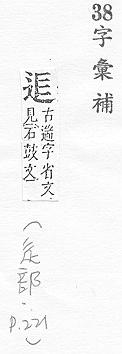 38字彙補
古字省文
見石鼓文
(辵部. p.221)